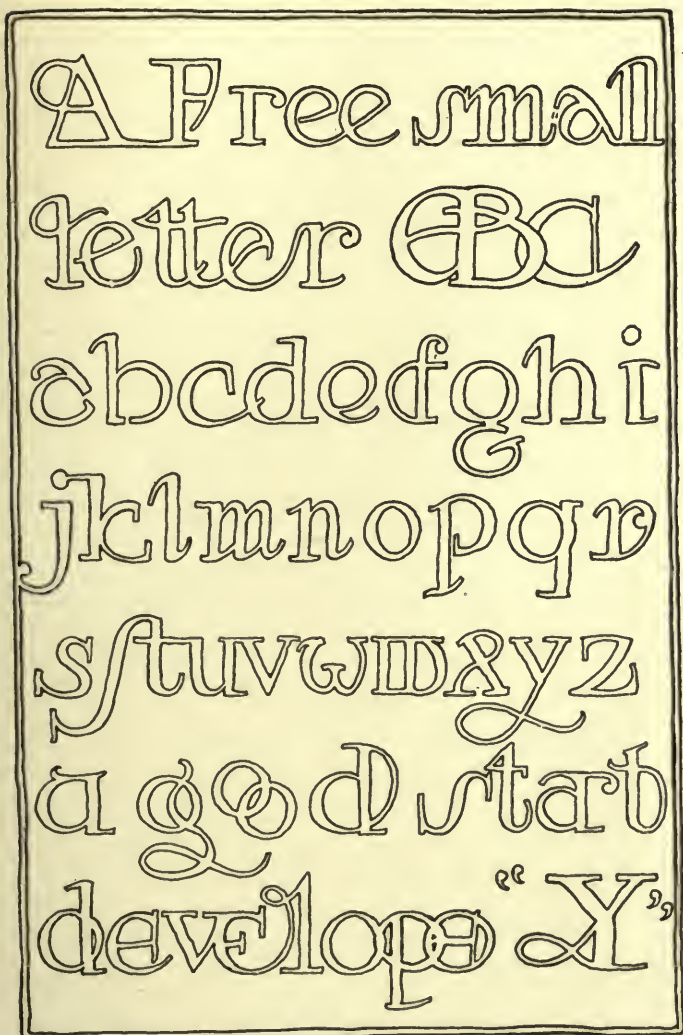 A Free small
letter ABC
abcdefghi
jklmnopqr
sſtuvwxyz
a good start
develope “Y”